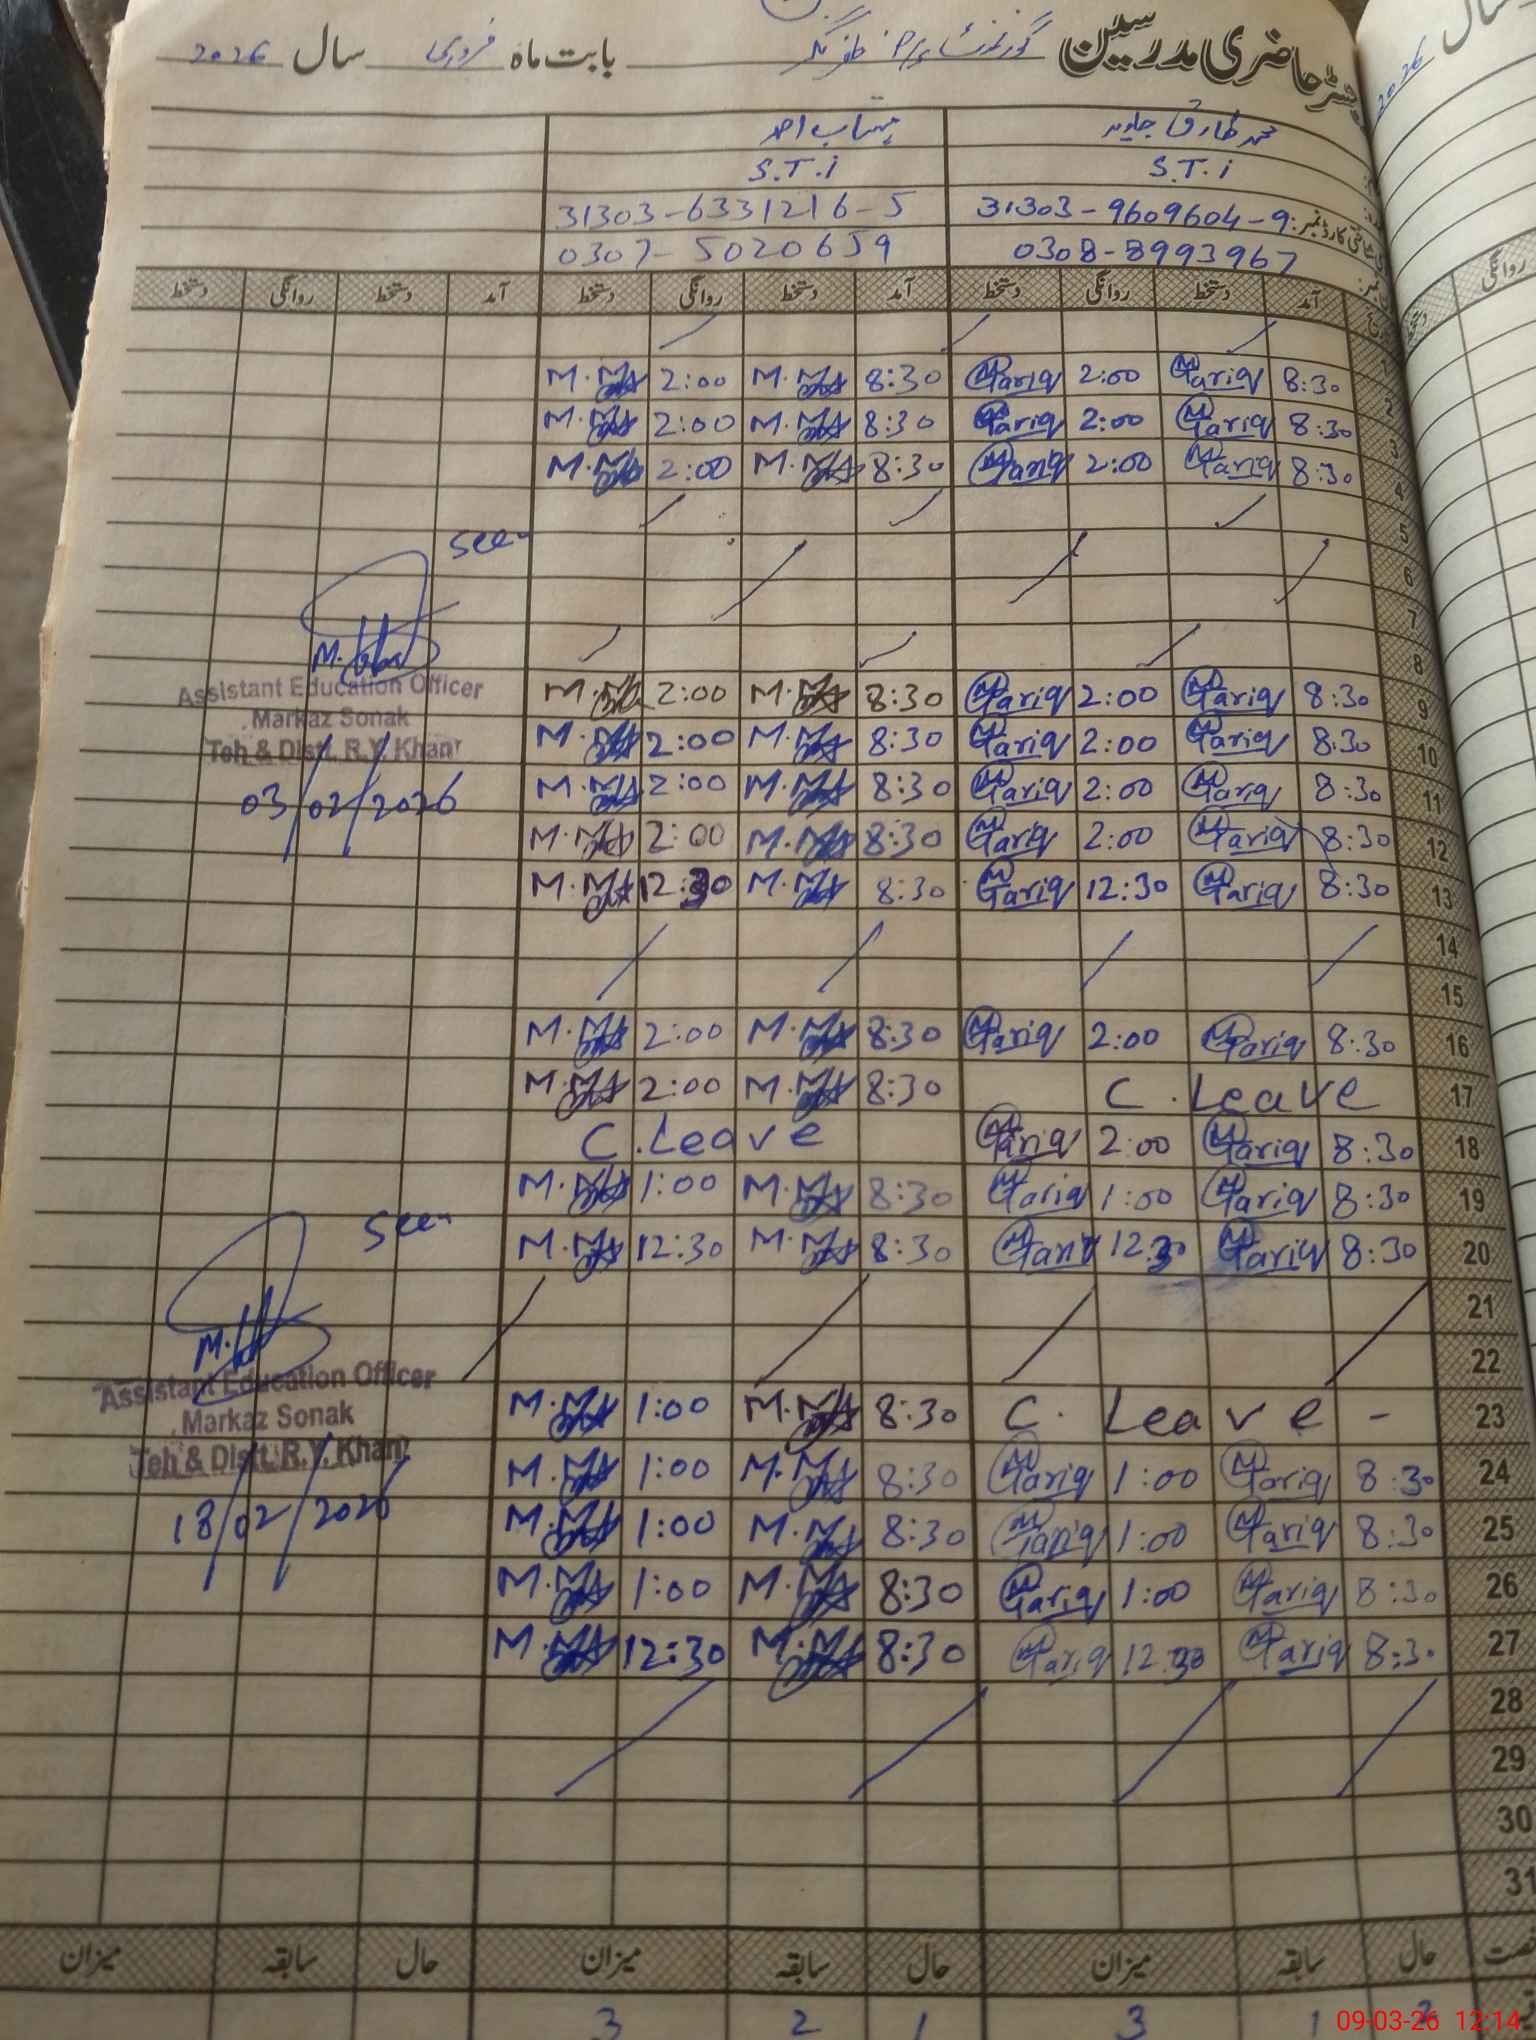 رجسٹر حاضری مدرسین گورنمنٹ پرائمری ظفر نگر بابت ماہ فروری سال 2026
محمد طارق جاوید مہتاب احمد
S.T.i S.T.i
31303-9609604-9 31303-6331216-5
0308-8993967 0307-5020659
آمد دستخط روانگی دستخط آمد دستخط روانگی دستخط آمد دستخط روانگی دستخط
1
2 8:30 Tariq 2:00 Tariq 8:30 M.MA 2:00 M.MA
3 8:30 Tariq 2:00 Tariq 8:30 M.MA 2:00 M.MA
4 8:30 Tariq 2:00 Tariq 8:30 M.MA 2:00 M.MA
5
6
7
8
9 8:30 Tariq 2:00 Tariq 8:30 M.MA 2:00 M.MA
10 8:30 Tariq 2:00 Tariq 8:30 M.MA 2:00 M.MA
11 8:30 Tariq 2:00 Tariq 8:30 M.MA 2:00 M.MA
12 8:30 Tariq 2:00 Tariq 8:30 M.MA 2:00 M.MA
13 8:30 Tariq 12:30 Tariq 8:30 M.MA 12:30 M.MA
14
15
16 8:30 Tariq 2:00 Tariq 8:30 M.MA 2:00 M.MA
17 C.Leave 8:30 M.MA 2:00 M.MA
18 8:30 Tariq 2:00 Tariq C.Leave
19 8:30 Tariq 1:00 Tariq 8:30 M.MA 1:00 M.MA
20 8:30 Tariq 12:30 Tariq 8:30 M.MA 12:30 M.MA
21
22
23 C. Leave - 8:30 M.MA 1:00 M.MA
24 8:30 Tariq 1:00 Tariq 8:30 M.MA 1:00 M.MA
25 8:30 Tariq 1:00 Tariq 8:30 M.MA 1:00 M.MA
26 8:30 Tariq 1:00 Tariq 8:30 M.MA 1:00 M.MA
27 8:30 Tariq 12:30 Tariq 8:30 M.MA 12:30 M.MA
28
29
30
31
حال سابقہ میزان حال سابقہ میزان حال سابقہ میزان
2 1 3 1 2 3
seen
Assistant Education Officer
Markaz Sonak
Teh & Distt. R.Y. Khan
03/02/2026
seen
Assistant Education Officer
Markaz Sonak
Teh & Distt. R.Y. Khan
18/02/2026
سال 2026
روانگی
09-03-26 12:14